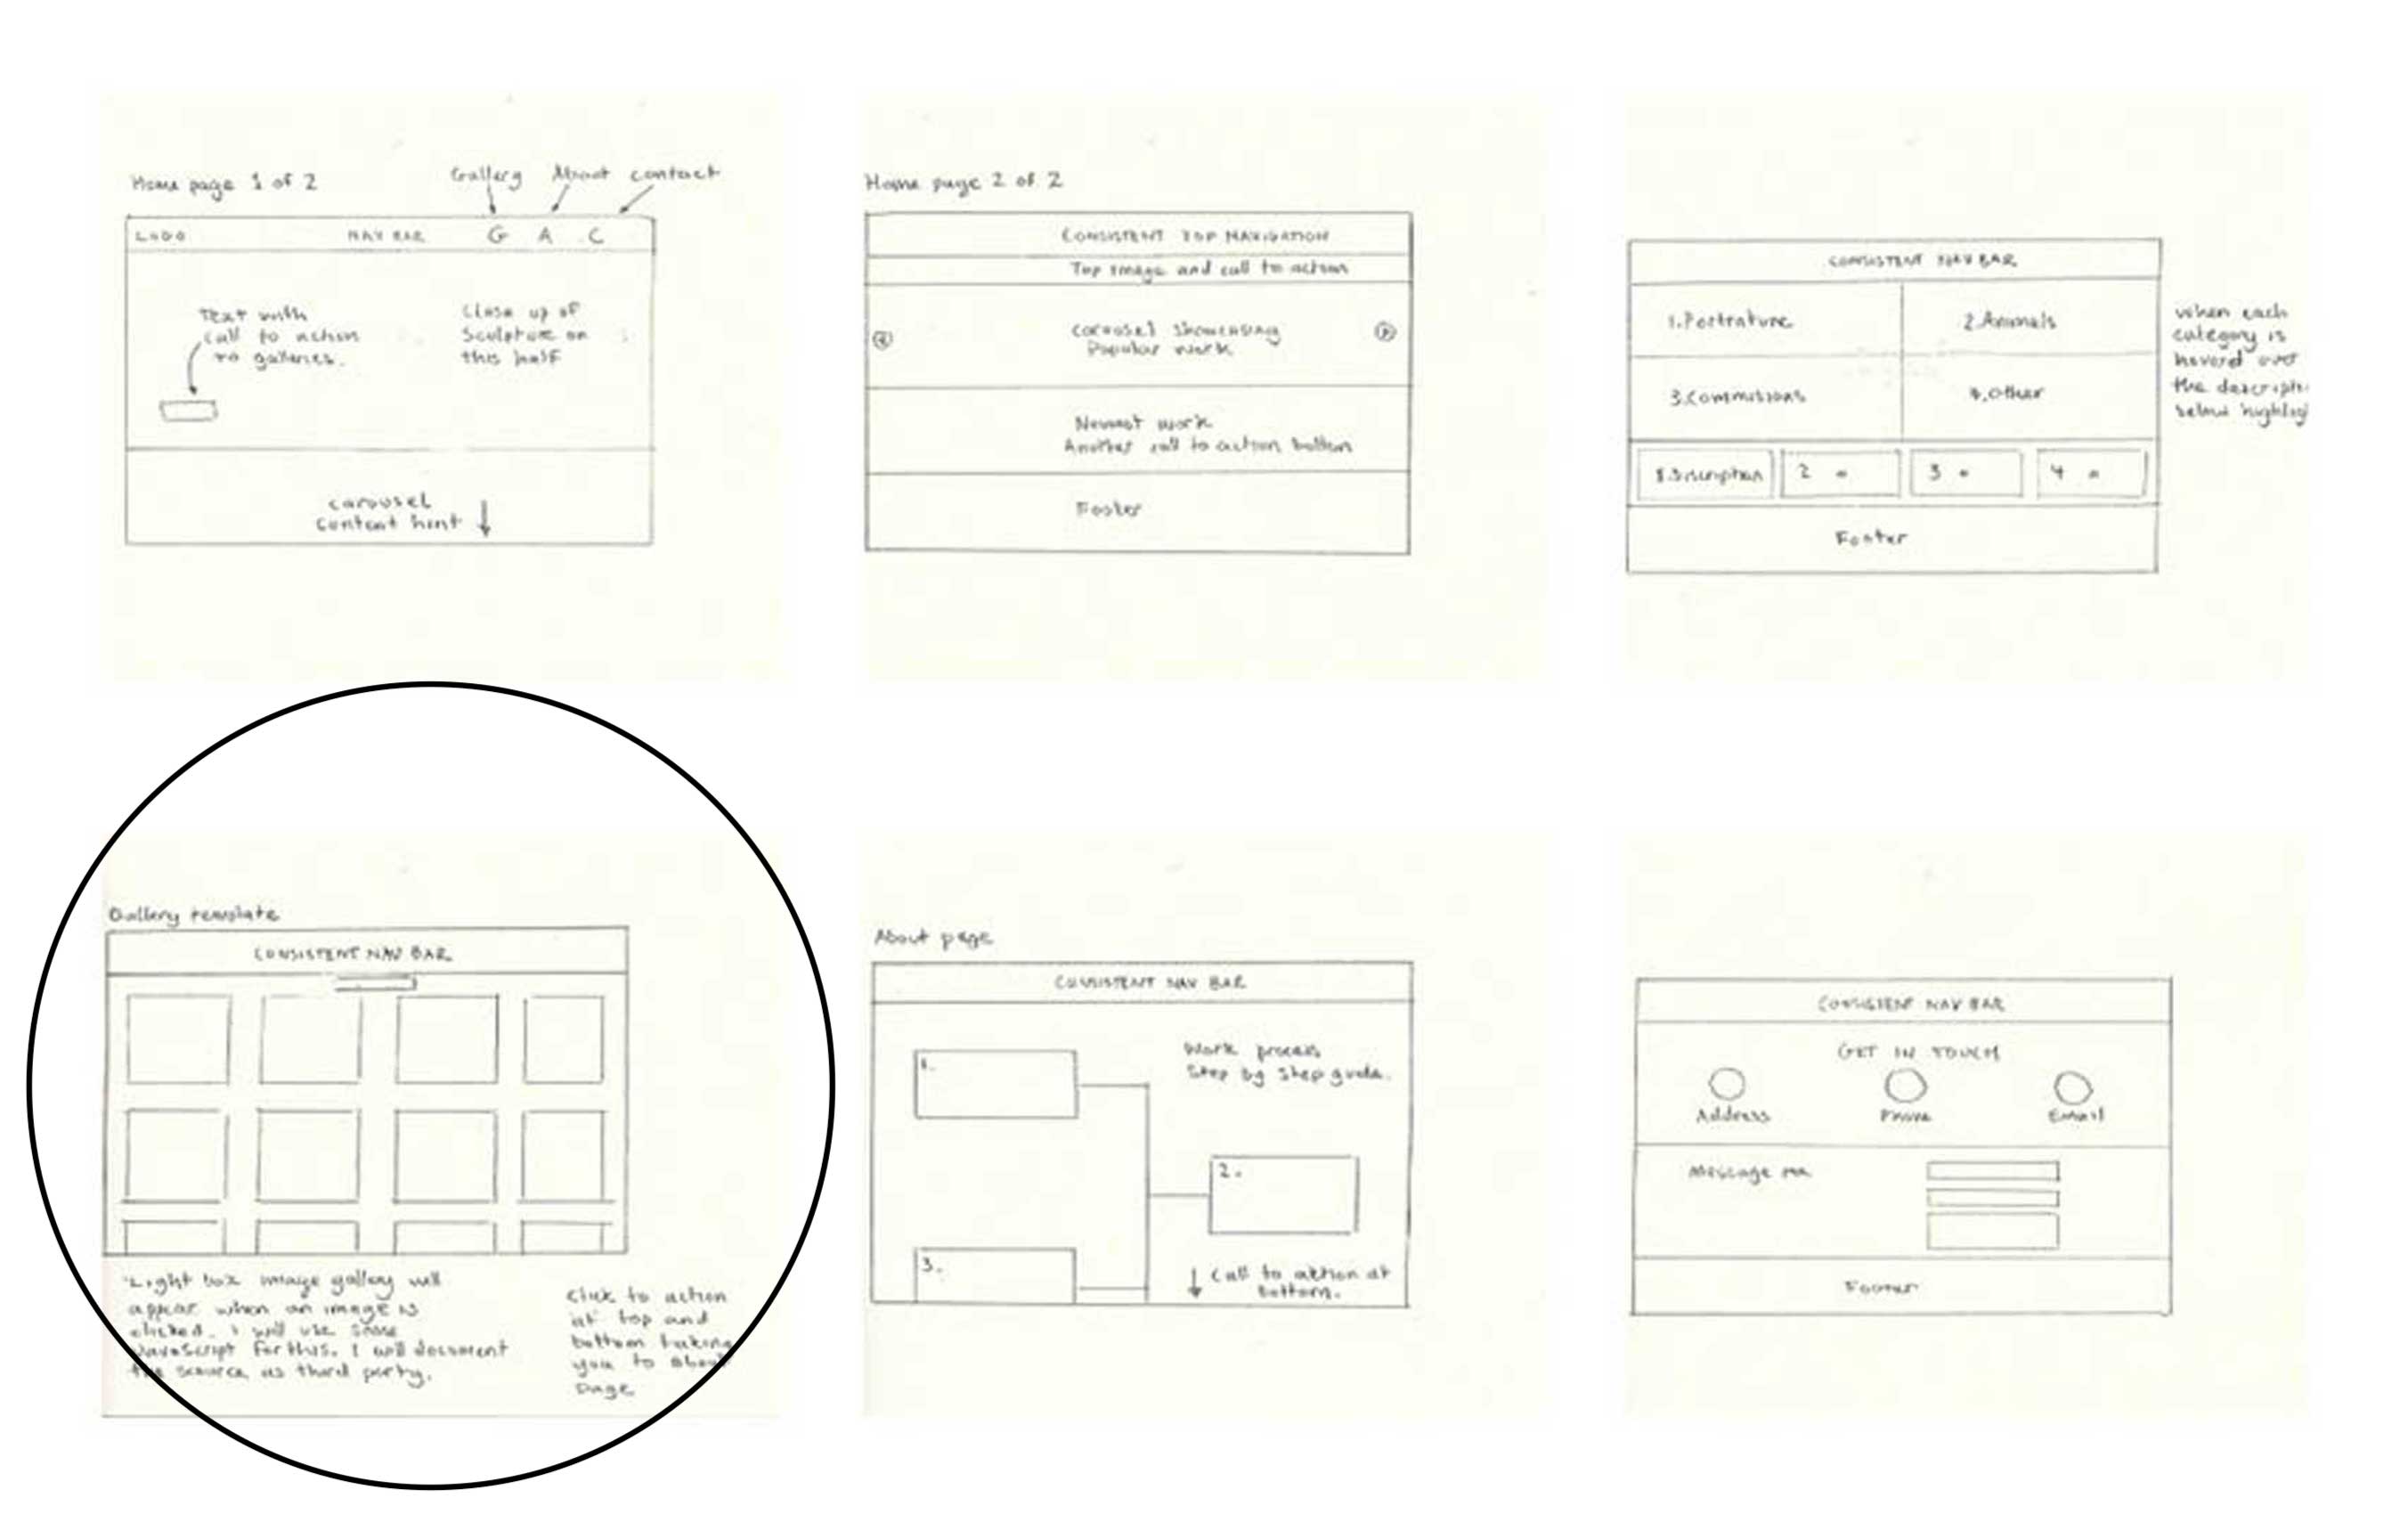 Home page 1 of 2
Gallery About contact
LOGO NAV BAR G A C
Text with
call to action
to galleries.
Close up of
Sculpture on
this half
carousel
content hint
Home page 2 of 2
CONSISTENT TOP NAVIGATION
Top image and call to action
carousel showcasing
Popular work
Newest work
Another call to action button
Footer
CONSISTENT NAV BAR
1.Portrature
2.Animals
3.Commissions
4.Other
when each
category is
hoverd over
the descripti
below highlig
1.Discription 2 " 3 " 4 "
Footer
Gallery template
CONSISTENT NAV BAR
Light box image gallery will
appear when an image is
clicked. I will use some
JavaScript for this. I will document
the source as third party.
click to action
at top and
bottom taking
you to about
page
About page
CONSISTENT NAV BAR
1.
Work process
Step by step guide.
2.
3.
Call to action at
bottom.
CONSISTENT NAV BAR
GET IN TOUCH
Address Phone Email
Message me
Footer